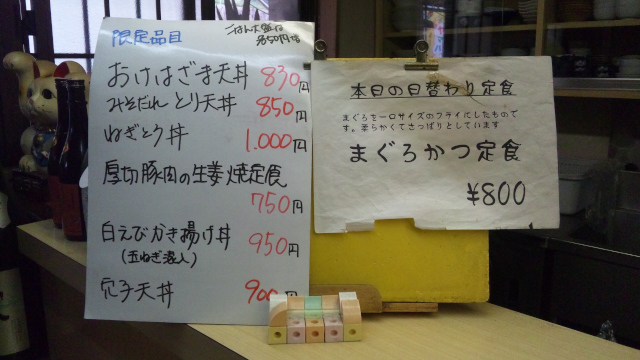 限定品目
ごはん大盛は
各50円増
おけはざま天丼 830円
みそだれとり天丼 850円
ねぎとろ丼 1.000円
厚切豚肉の生姜焼定食
750円
白えびかき揚げ丼 950円
(玉ねぎ混入)
穴子天丼 900円
本日の日替わり定食
まぐろを一口サイズのフライにしたもので
す。柔らかくてさっぱりとしています
まぐろかつ定食
¥800